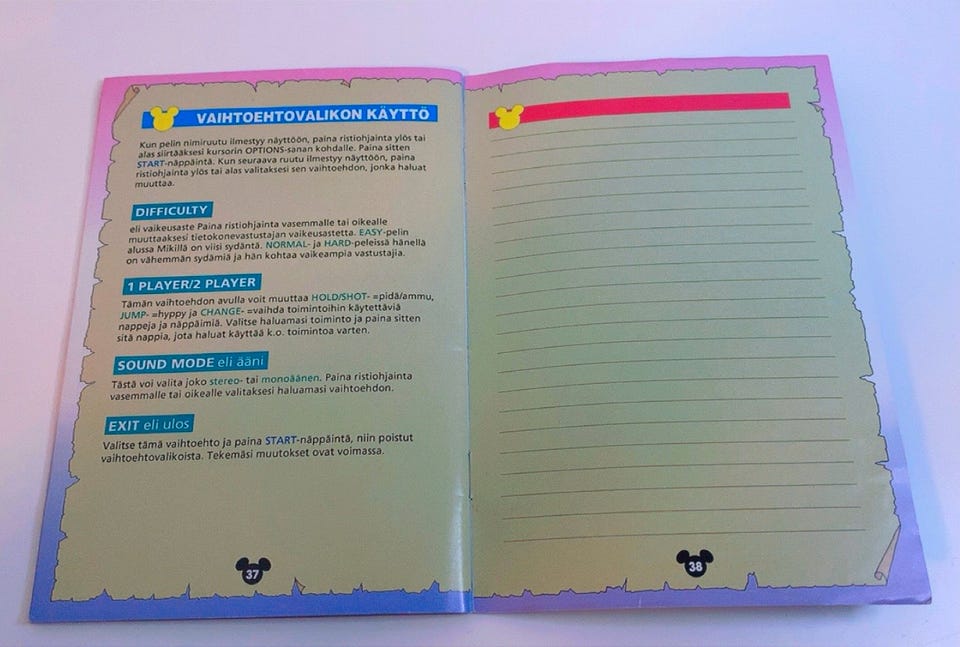 VAIHTOEHTOVALIKON KÄYTTÖ
Kun pelin nimiruutu ilmestyy näyttöön, paina ristiohjainta ylös tai
alas siirtääksesi kursorin OPTIONS-sanan kohdalle. Paina sitten
START-näppäintä. Kun seuraava ruutu ilmestyy näyttöön, paina
ristiohjainta ylös tai alas valitaksesi sen vaihtoehdon, jonka haluat
muuttaa.
DIFFICULTY
eli vaikeusaste Paina ristiohjainta vasemmalle tai oikealle
muuttaaksesi tietokonevastustajan vaikeusastetta. EASY-pelin
alussa Mikillä on viisi sydäntä. NORMAL- ja HARD-peleissä hänellä
on vähemmän sydämiä ja hän kohtaa vaikeampia vastustajia.
1 PLAYER/2 PLAYER
Tämän vaihtoehdon avulla voit muuttaa HOLD/SHOT- =pidä/ammu,
JUMP- =hyppy ja CHANGE- =vaihda toimintoihin käytettäviä
nappeja ja näppäimiä. Valitse haluamasi toiminto ja paina sitten
sitä nappia, jota haluat käyttää k.o. toimintoa varten.
SOUND MODE eli ääni
Tästä voi valita joko stereo- tai monoäänen. Paina ristiohjainta
vasemmalle tai oikealle valitaksesi haluamasi vaihtoehdon.
EXIT eli ulos
Valitse tämä vaihtoehto ja paina START-näppäintä, niin poistut
vaihtoehtovalikoista. Tekemäsi muutokset ovat voimassa.
37
38